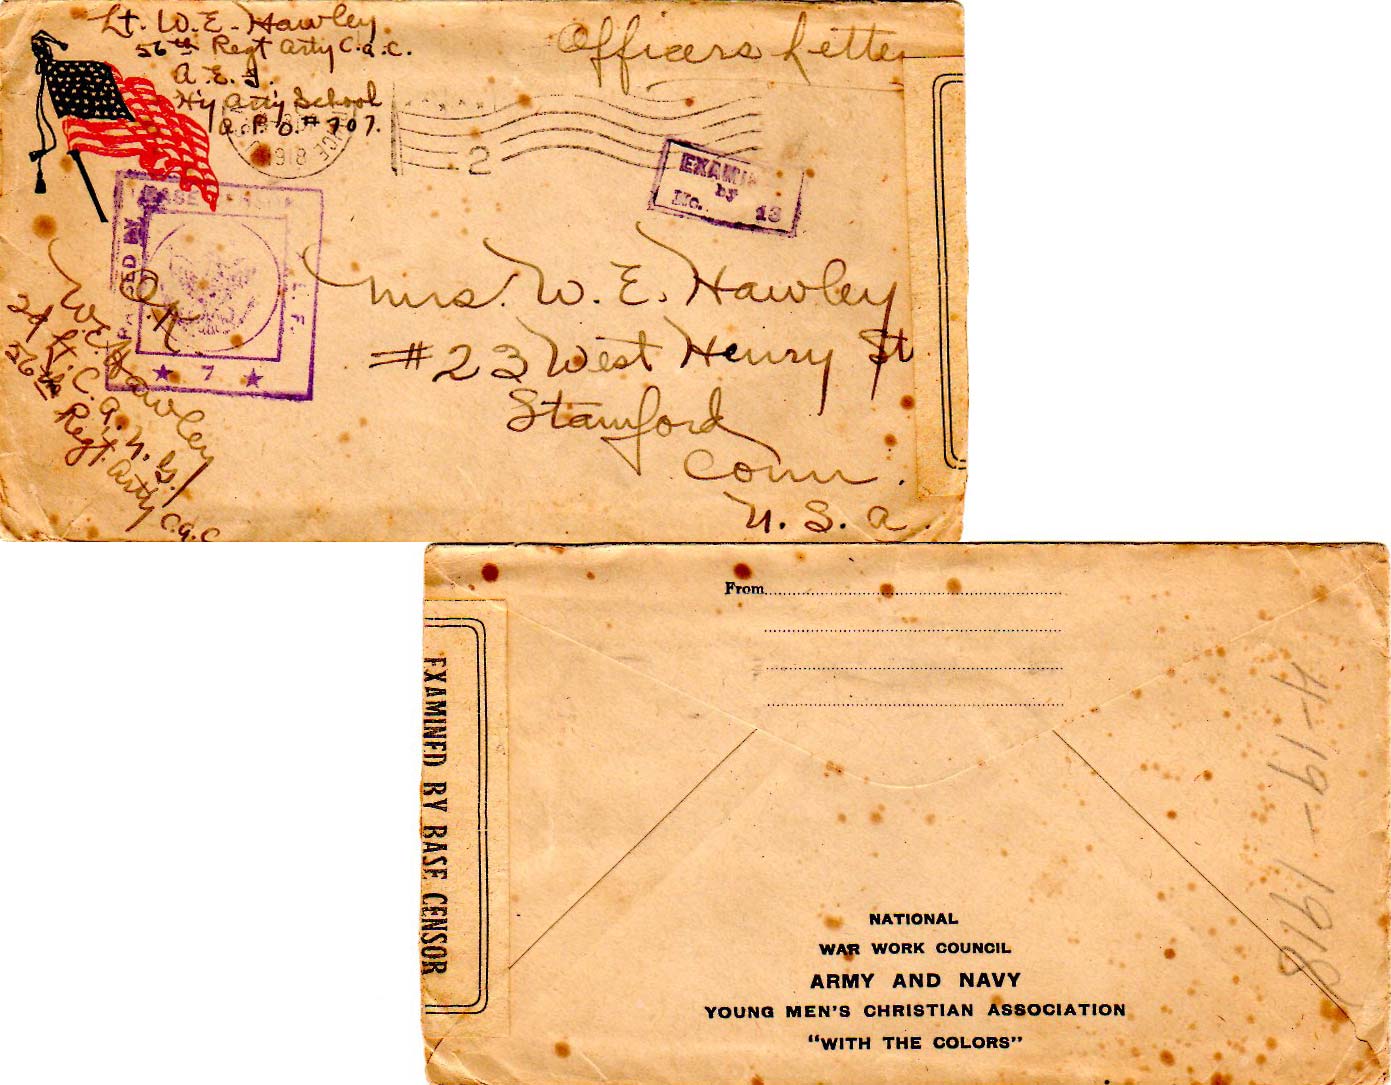 Lt. W. E. Hawley
56th Regt Arty C.a.C.
A. E. F.
H'y Arty School
A. P. O. # 707.
Officers Letter
1918
2
EXAMI
by
No. 13
PASSED BY
BASE
★ 7 ★
OK
W. E. Hawley
2d Lt. C. A. N. G.
56th Regt. Arty C.a.C
Mrs. W. E. Hawley
#23 West Henry St
Stamford
Conn.
U. S. a.
From
EXAMINED BY BASE CENSOR
4-19-1918
NATIONAL
WAR WORK COUNCIL
ARMY AND NAVY
YOUNG MEN'S CHRISTIAN ASSOCIATION
"WITH THE COLORS"